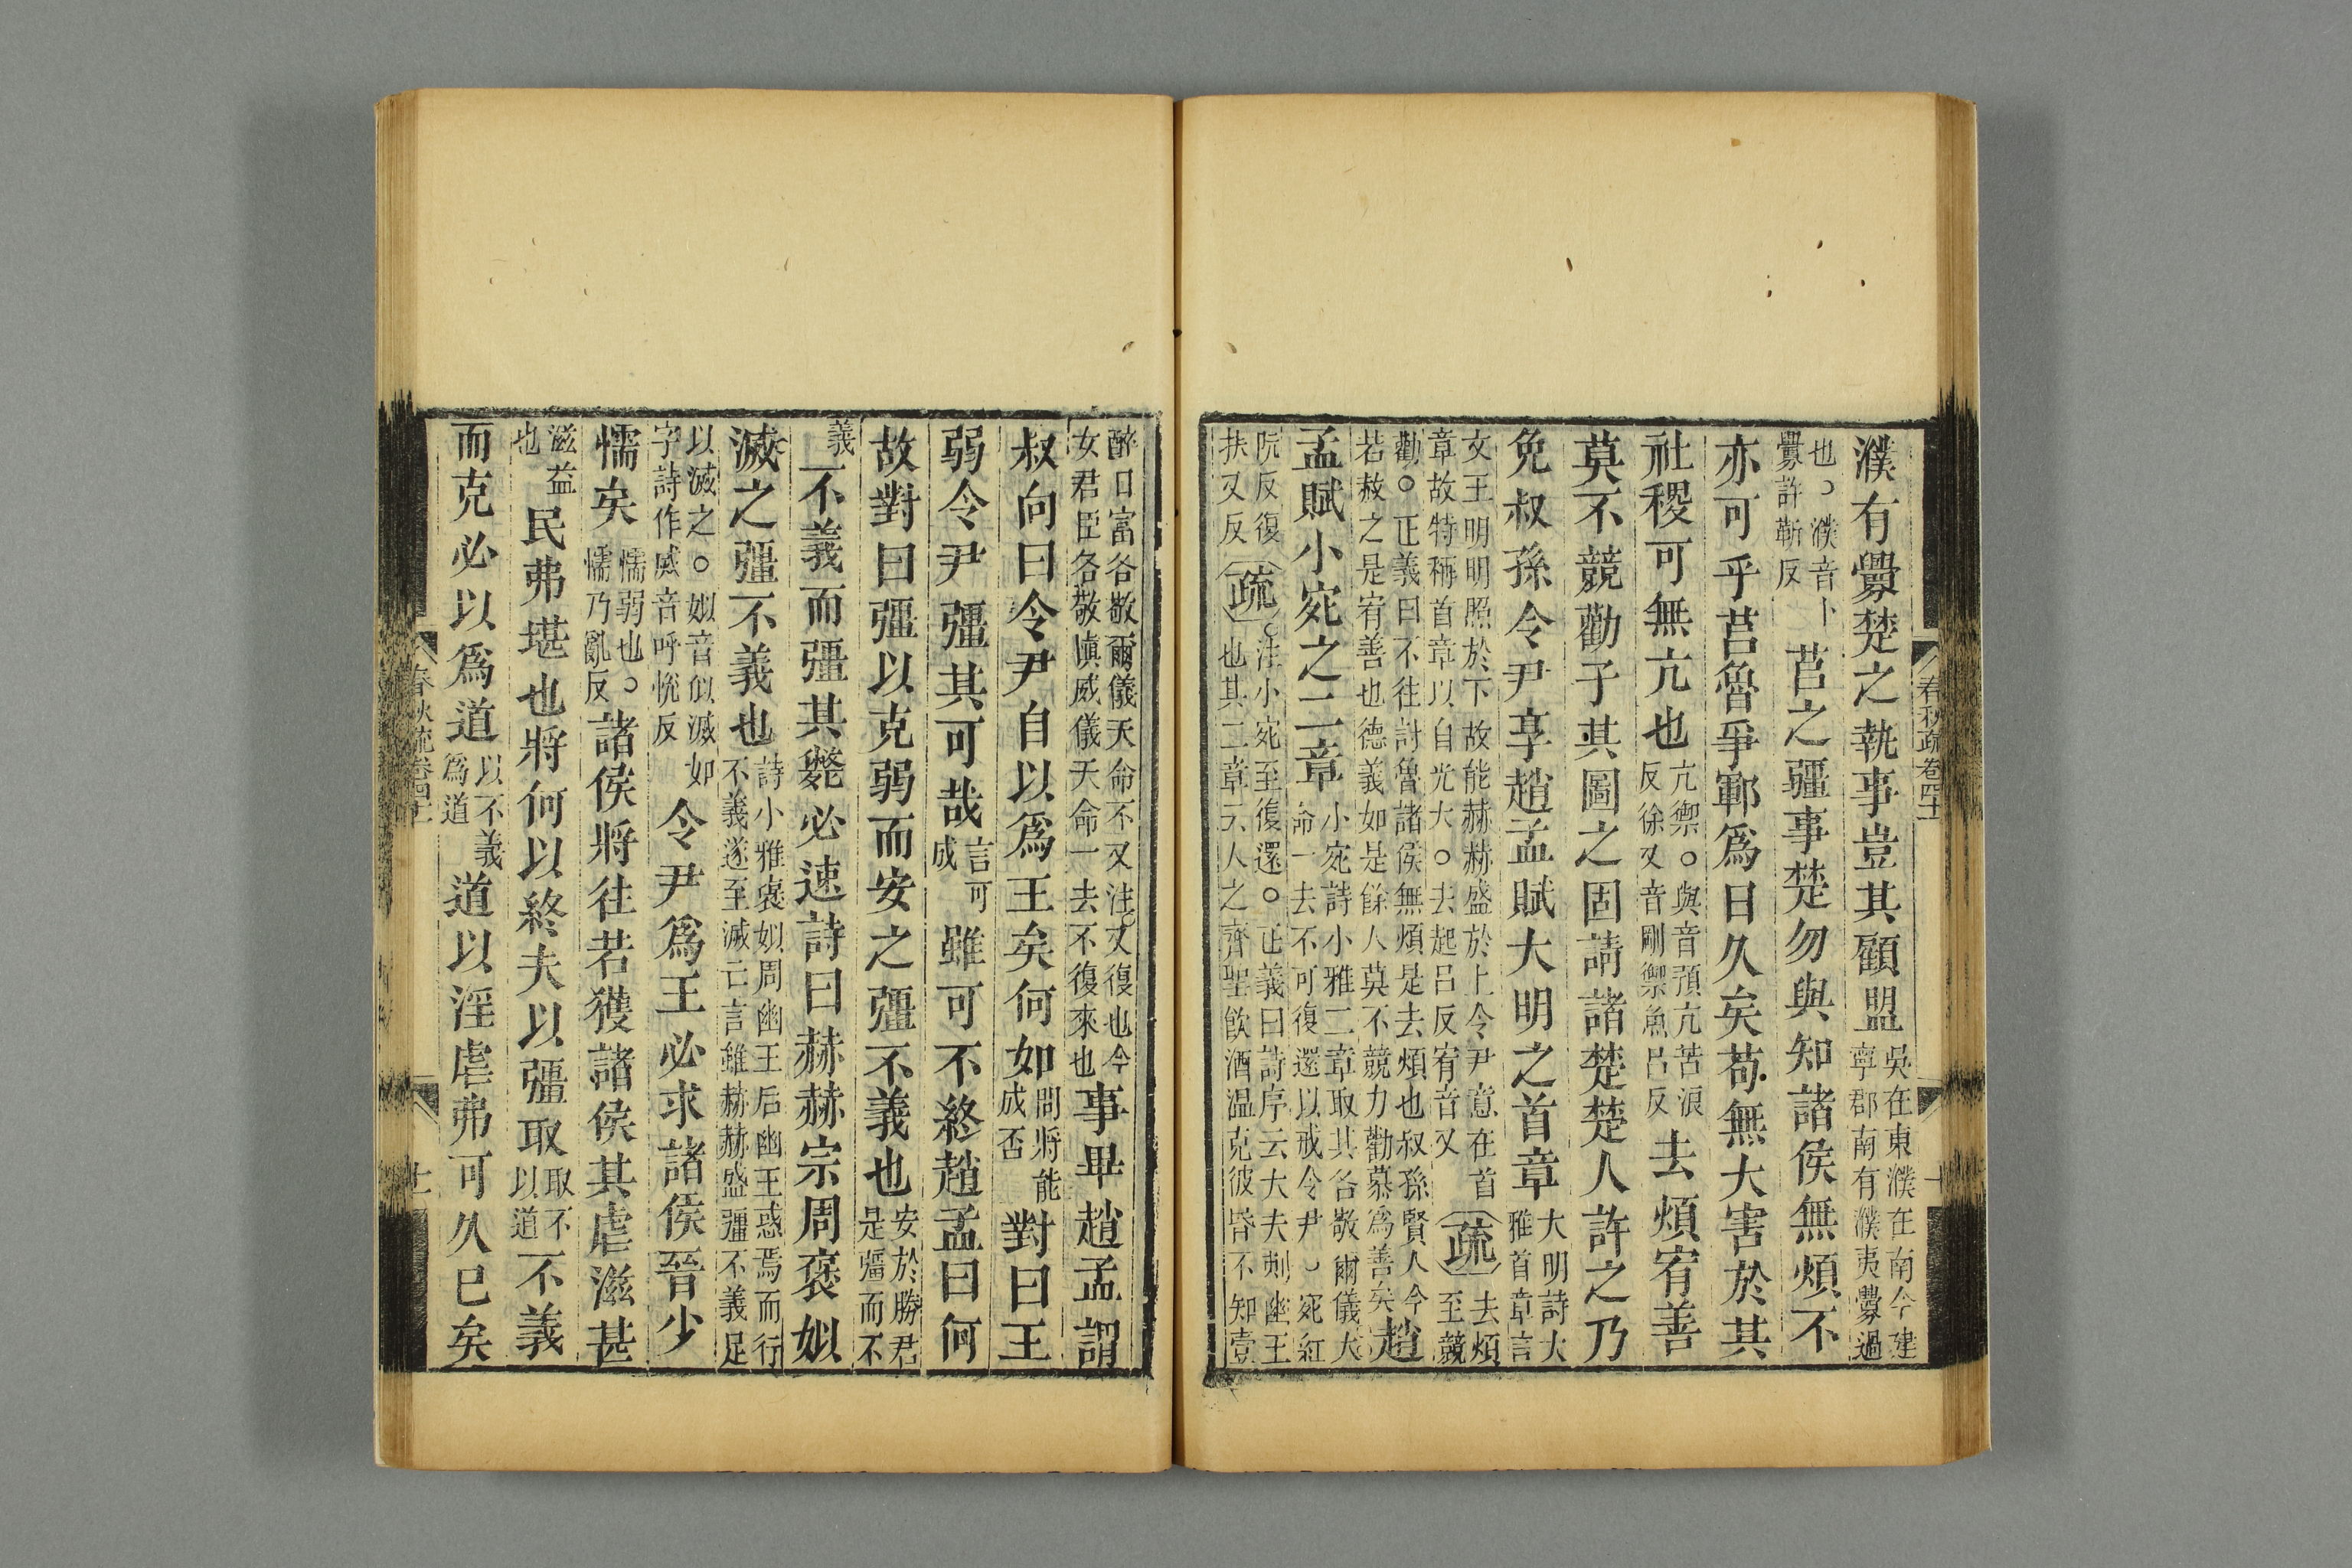 濮有釁楚之執事豈其顧盟吳在東濮在南今建寧郡南有濮夷釁過
也○濮音卜釁許靳反莒之疆事楚勿與知諸侯無煩不
亦可乎莒魯爭鄆為日久矣苟無大害於其
社稷可無亢也亢禦○與音預亢苦浪反徐又音剛禦魚呂反去煩宥善
莫不競勸子其圖之固請諸楚楚人許之乃
免叔孫令尹享趙孟賦大明之首章大明詩大雅首章言
文王明明照於下故能赫赫盛於上令尹意在首章故特稱首章以自光大○去起呂反宥音又疏去煩至競
勸○正義曰不往討魯諸侯無煩是去煩也叔孫賢人今若赦之是宥善也德義如是餘人莫不競力勸慕為善矣趙
孟賦小宛之二章小宛詩小雅二章取其各敬爾儀天命一去不可復還以戒令尹○宛紅
阮反復扶又反疏注小宛至復還○正義曰詩序云大夫刺幽王也其二章云人之齊聖飲酒溫克彼昏不知壹
春秋疏卷四十一
十
醉日富各敬爾儀天命不又注又復也今女君臣各敬慎威儀天命一去不復來也事畢趙孟謂
叔向曰令尹自以為王矣何如問將能成否對曰王
弱令尹彊其可哉言可成雖可不終趙孟曰何
故對曰彊以克弱而安之彊不義也安於勝君是彊而不
義不義而彊其斃必速詩曰赫赫宗周褒姒
滅之彊不義也詩小雅褒姒周幽王后幽王惑焉而行不義遂至滅亡言雖赫赫盛彊不義足
以滅之○姒音似滅如字詩作烕音呼悅反令尹為王必求諸侯晉少
懦矣懦弱也○懦乃亂反諸侯將往若獲諸侯其虐滋甚
滋益也民弗堪也將何以終夫以彊取取不以道不義
而克必以為道以不義為道道以淫虐弗可久已矣
春秋疏卷四十一
十一